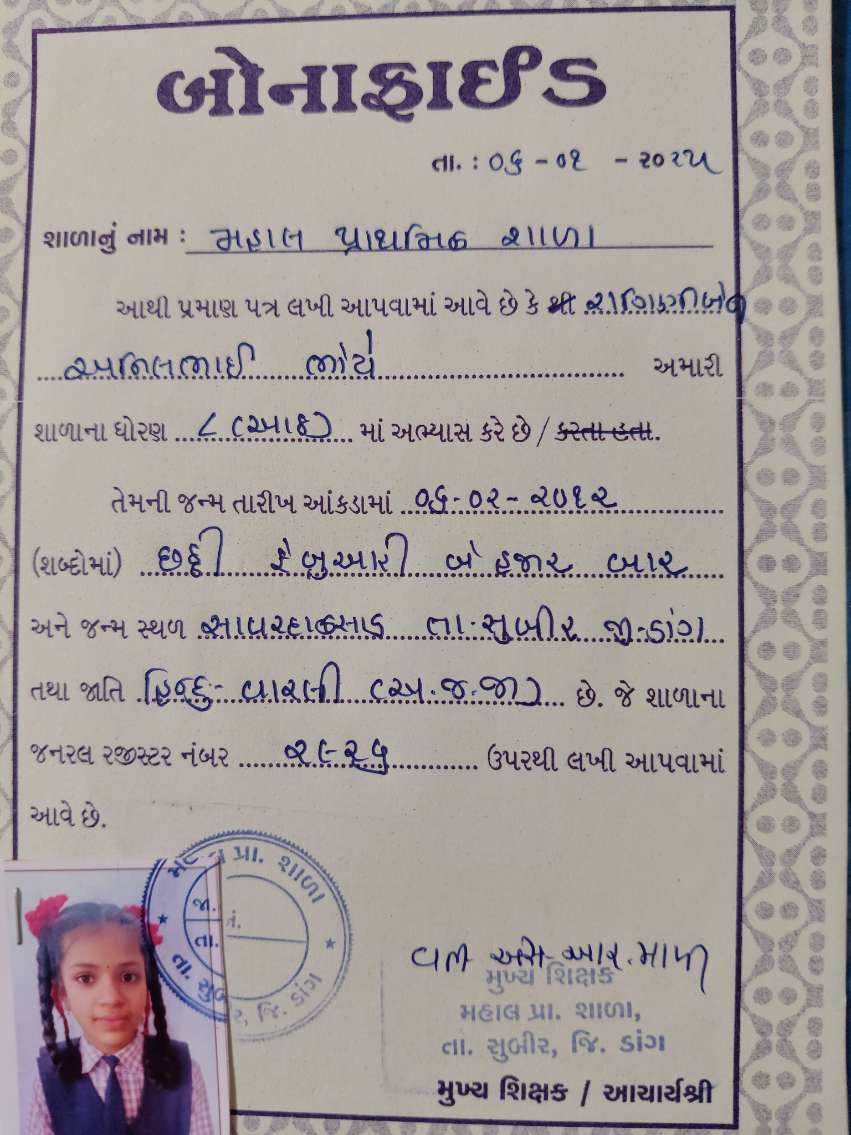 બોનાફાઈડ
તા. : ૦૬ - ૦૧ - ૨૦૨૫
શાળાનું નામ : મહાલ પ્રાથમિક શાળા
આથી પ્રમાણ પત્ર લખી આપવામાં આવે છે કે શ્રી રાગિણીબેન
અનિલભાઈ ભોયે અમારી
શાળાના ધોરણ ૮ (આઠ) માં અભ્યાસ કરે છે / કરતા હતા.
તેમની જન્મ તારીખ આંકડામાં ૦૬-૦૨-૨૦૧૨
(શબ્દોમાં) છઠ્ઠી ફેબ્રુઆરી બે હજાર બાર
અને જન્મ સ્થળ તા.સુબીર જી-ડાંગ
તથા જાતિ હિન્દુ- વારલી (અ.જ.જા) છે. જે શાળાના
જનરલ રજીસ્ટર નંબર ઉપરથી લખી આપવામાં
આવે છે.
પ્રા. શાળા
જા. નં.
તા.
તા. સુબીર, જિ. ડાંગ
આર.
મુખ્ય શિક્ષક
મહાલ પ્રા. શાળા,
તા. સુબીર, જિ. ડાંગ
મુખ્ય શિક્ષક / આચાર્યશ્રી